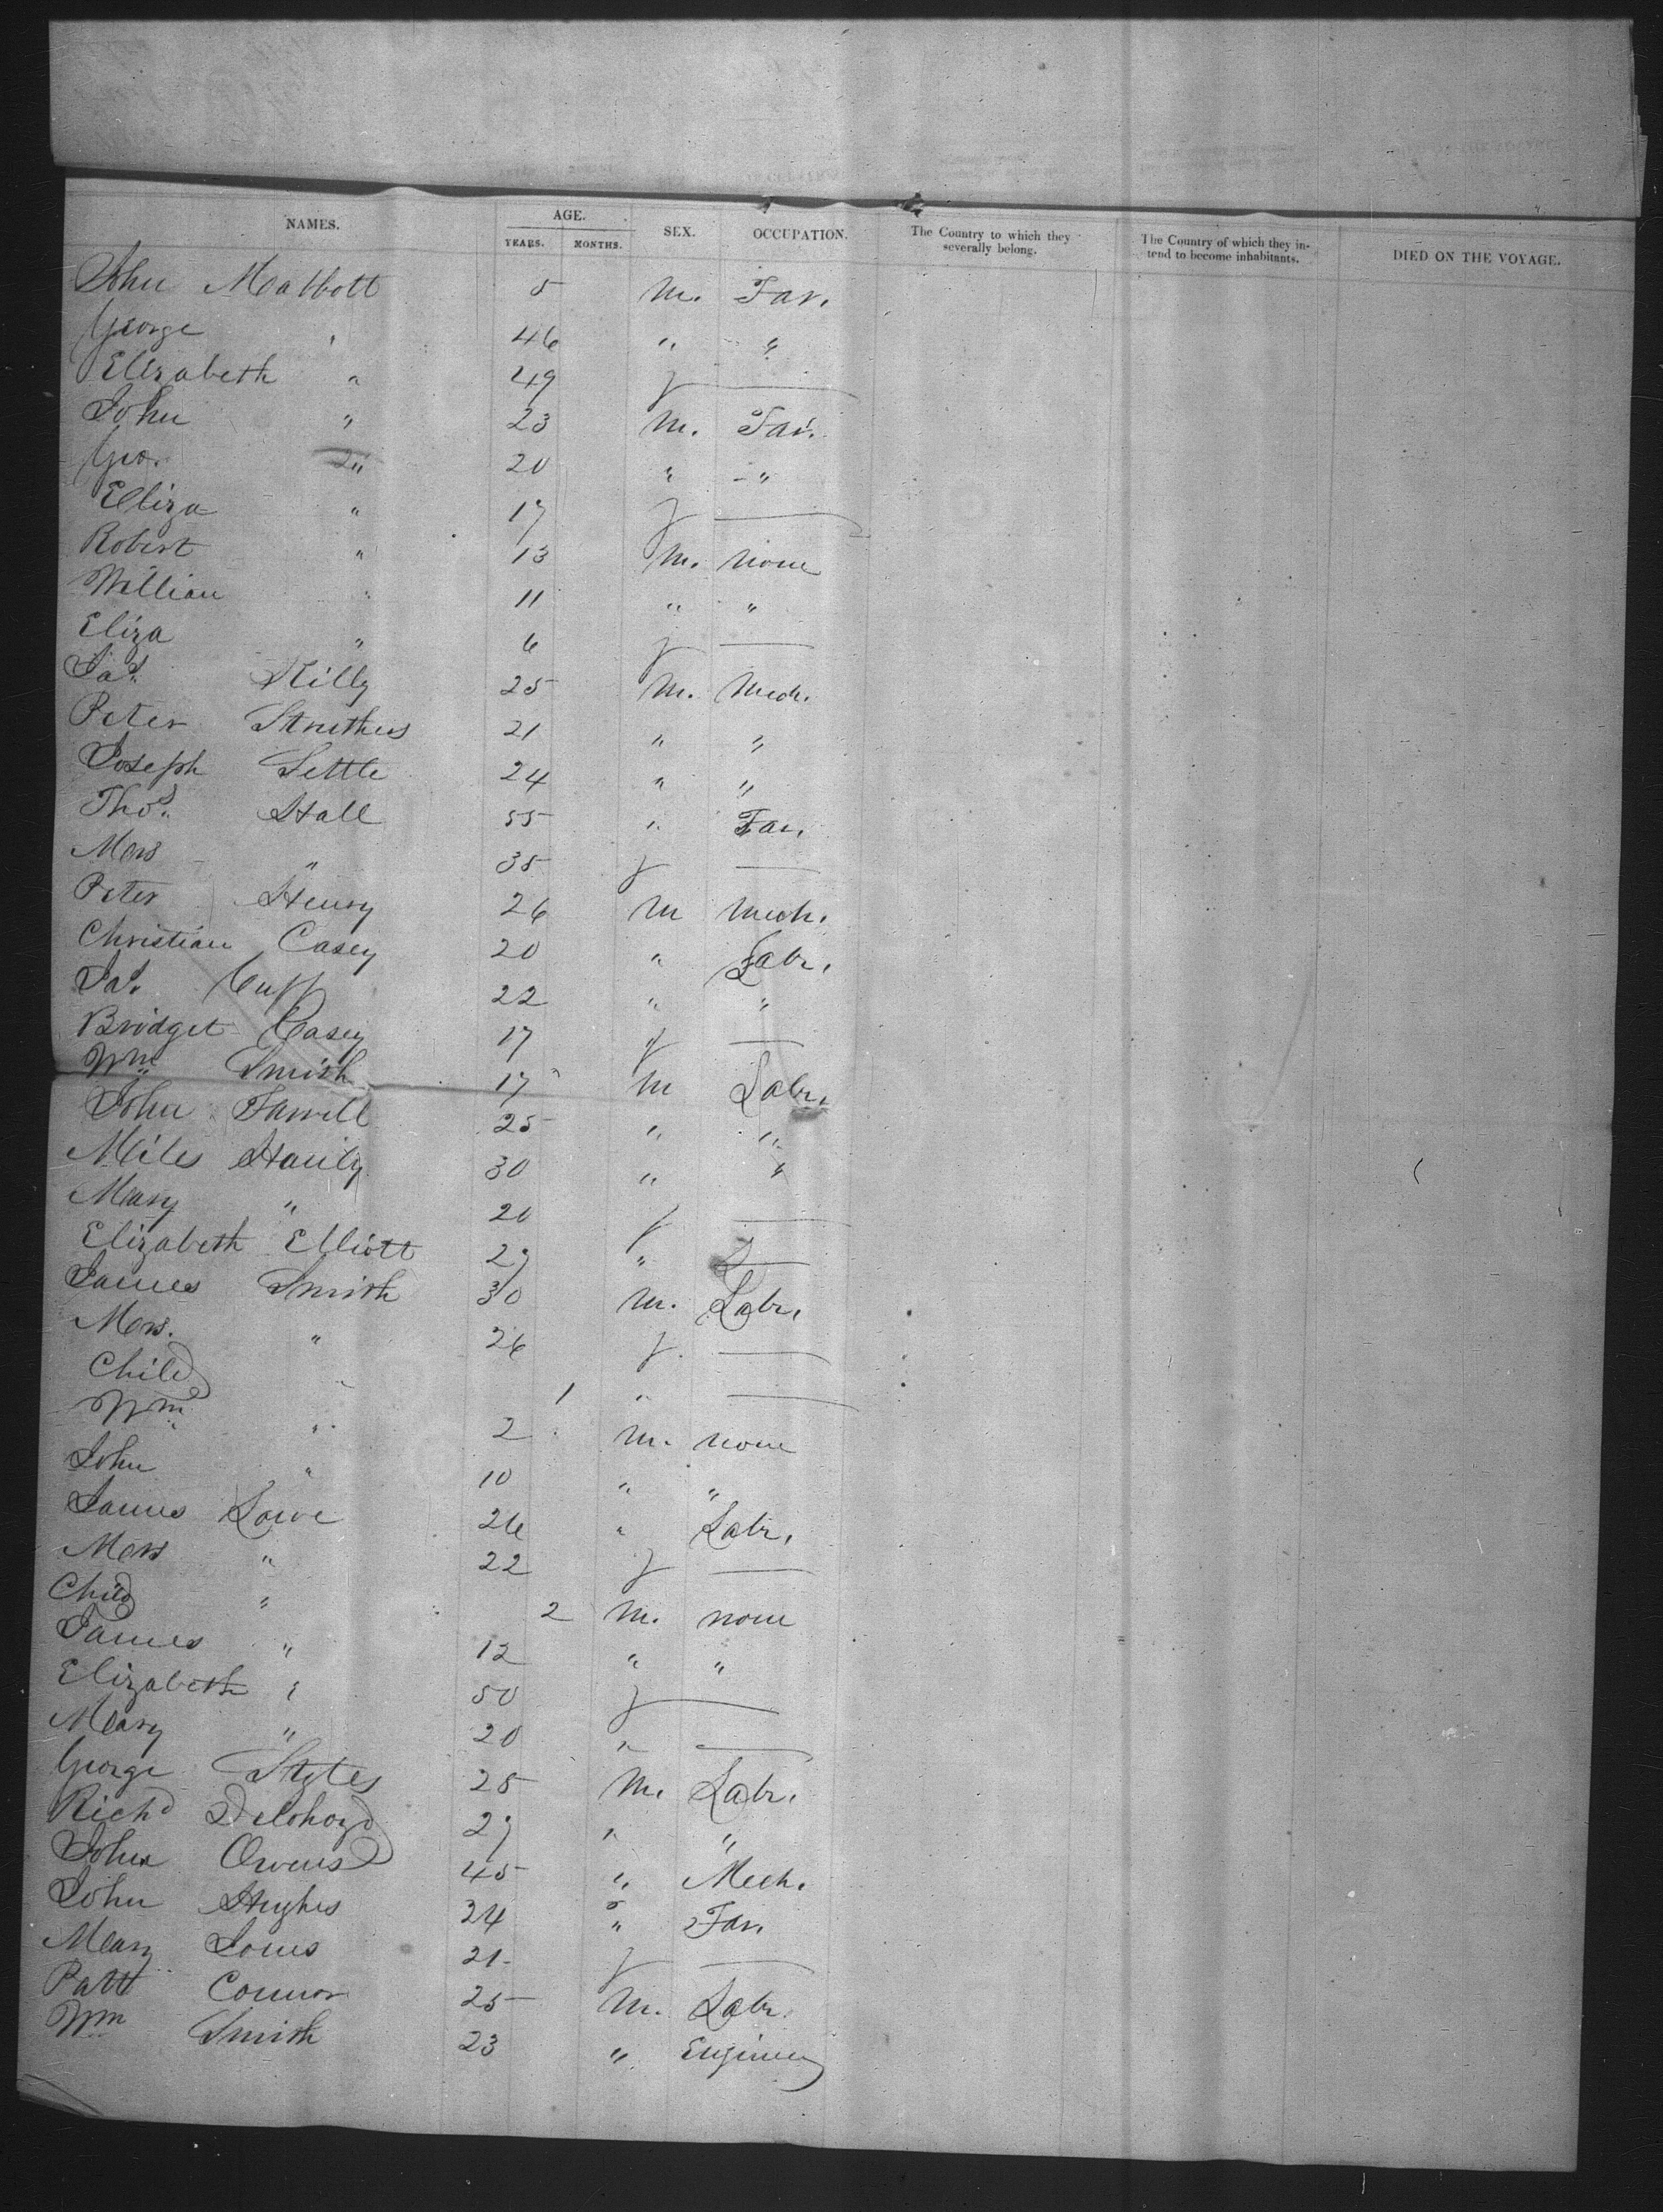 NAMES. AGE. YEARS. MONTHS. SEX. OCCUPATION. The Country to which they severally belong. The Country of which they intend to become inhabitants. DIED ON THE VOYAGE.
John Malbott 5 M. Far.
George " 46 " "
Elizabeth " 49 f —
John " 23 M. Far.
Geo. " 20 " "
Eliza " 17 f —
Robert " 13 M. none
William " 11 " "
Eliza " 6 f —
Jas. Killy 25 M. Mech.
Peter Struthers 21 " "
Joseph Settle 24 " "
Thos. Hall 55 " Far.
Mrs " 35 f —
Peter Henry 26 M Mech.
Christian Casey 20 " Labr.
Jas. Cuff 22 " "
Bridget Casey 17 f —
Wm Smith 17 M Labr.
John Farrell 25 " "
Miles Hanily 30 " "
Mary " 20 f —
Elizabeth Elliott 27 " —
James Smith 30 M. Labr.
Mrs. " 26 f. —
Child " 1 " —
Wm " 2 M. none
John " 10 " "
James Lowe 26 " Labr.
Mrs " 22 f —
Child " 2 M. none
James " 12 " "
Elizabeth " 50 f —
Mary " 20 " —
George Styles 25 M. Labr.
Richd 27 " "
John Owens 45 " Mech.
John Hughes 24 " Far.
Mary Jones 21 f —
Patt Connor 25 M. Labr.
Wm Smith 23 " Engineer